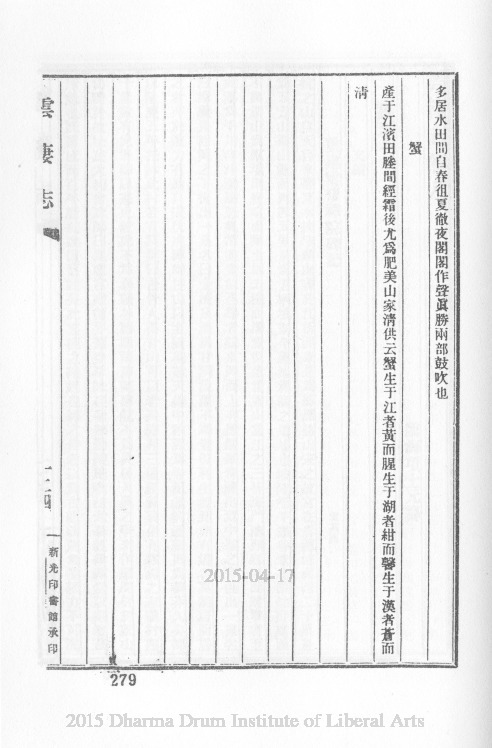 多居水田間自春徂夏徹夜閣閣作聲眞勝兩部鼓吹也
蟹
產于江濱田塍間經霜後尤爲肥美山家清供云蟹生于江者黃而腥生于湖者紺而馨生于漢者蒼而
清
雲棲志
二四
新光印書館承印
279
2015-04-17
2015 Dharma Drum Institute of Liberal Arts